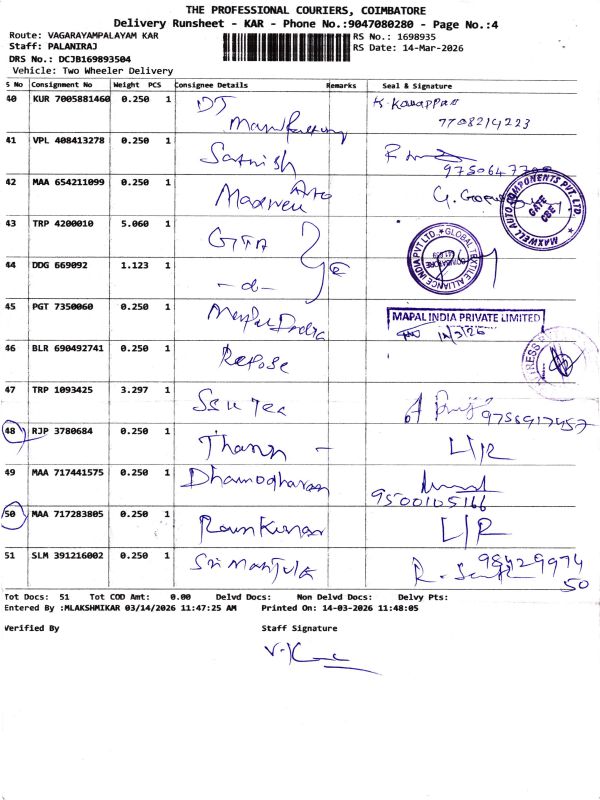 THE PROFESSIONAL COURIERS, COIMBATORE
Delivery Runsheet - KAR - Phone No.:9047080280 - Page No.:4
Route: VAGARAYAMPALAYAM KAR RS No.: 1698935
Staff: PALANIRAJ RS Date: 14-Mar-2026
DRS No.: DCJB169893504
Vehicle: Two Wheeler Delivery
S No Consignment No Weight PCS Consignee Details Remarks Seal & Signature
40 KUR 7005881460 0.250 1 DJ
7708214223
41 VPL 408413278 0.250 1 Sathish
42 MAA 654211099 0.250 1
MAXWELL AUTO COMPONENTS PVT. LTD. GATE CBE
43 TRP 4200010 5.060 1 GTA
GLOBAL TEXTILE ALLIANCE INDIA PVT LTD.
44 DDG 669092 1.123 1 -d-
45 PGT 7350060 0.250 1 MAPAL INDIA PRIVATE LIMITED
46 BLR 690492741 0.250 1 Repose
47 TRP 1093425 3.297 1
9756917457
48 RJP 3780684 0.250 1 L/R
49 MAA 717441575 0.250 1 Dhamodharan
9500105166
50 MAA 717283805 0.250 1 Ramkumar L/R
51 SLM 391216002 0.250 1 Sri Manjula
Tot Docs: 51 Tot COD Amt: 0.00 Delvd Docs: Non Delvd Docs: Delvy Pts:
Entered By :MLAKSHMIKAR 03/14/2026 11:47:25 AM Printed On: 14-03-2026 11:48:05
Verified By Staff Signature